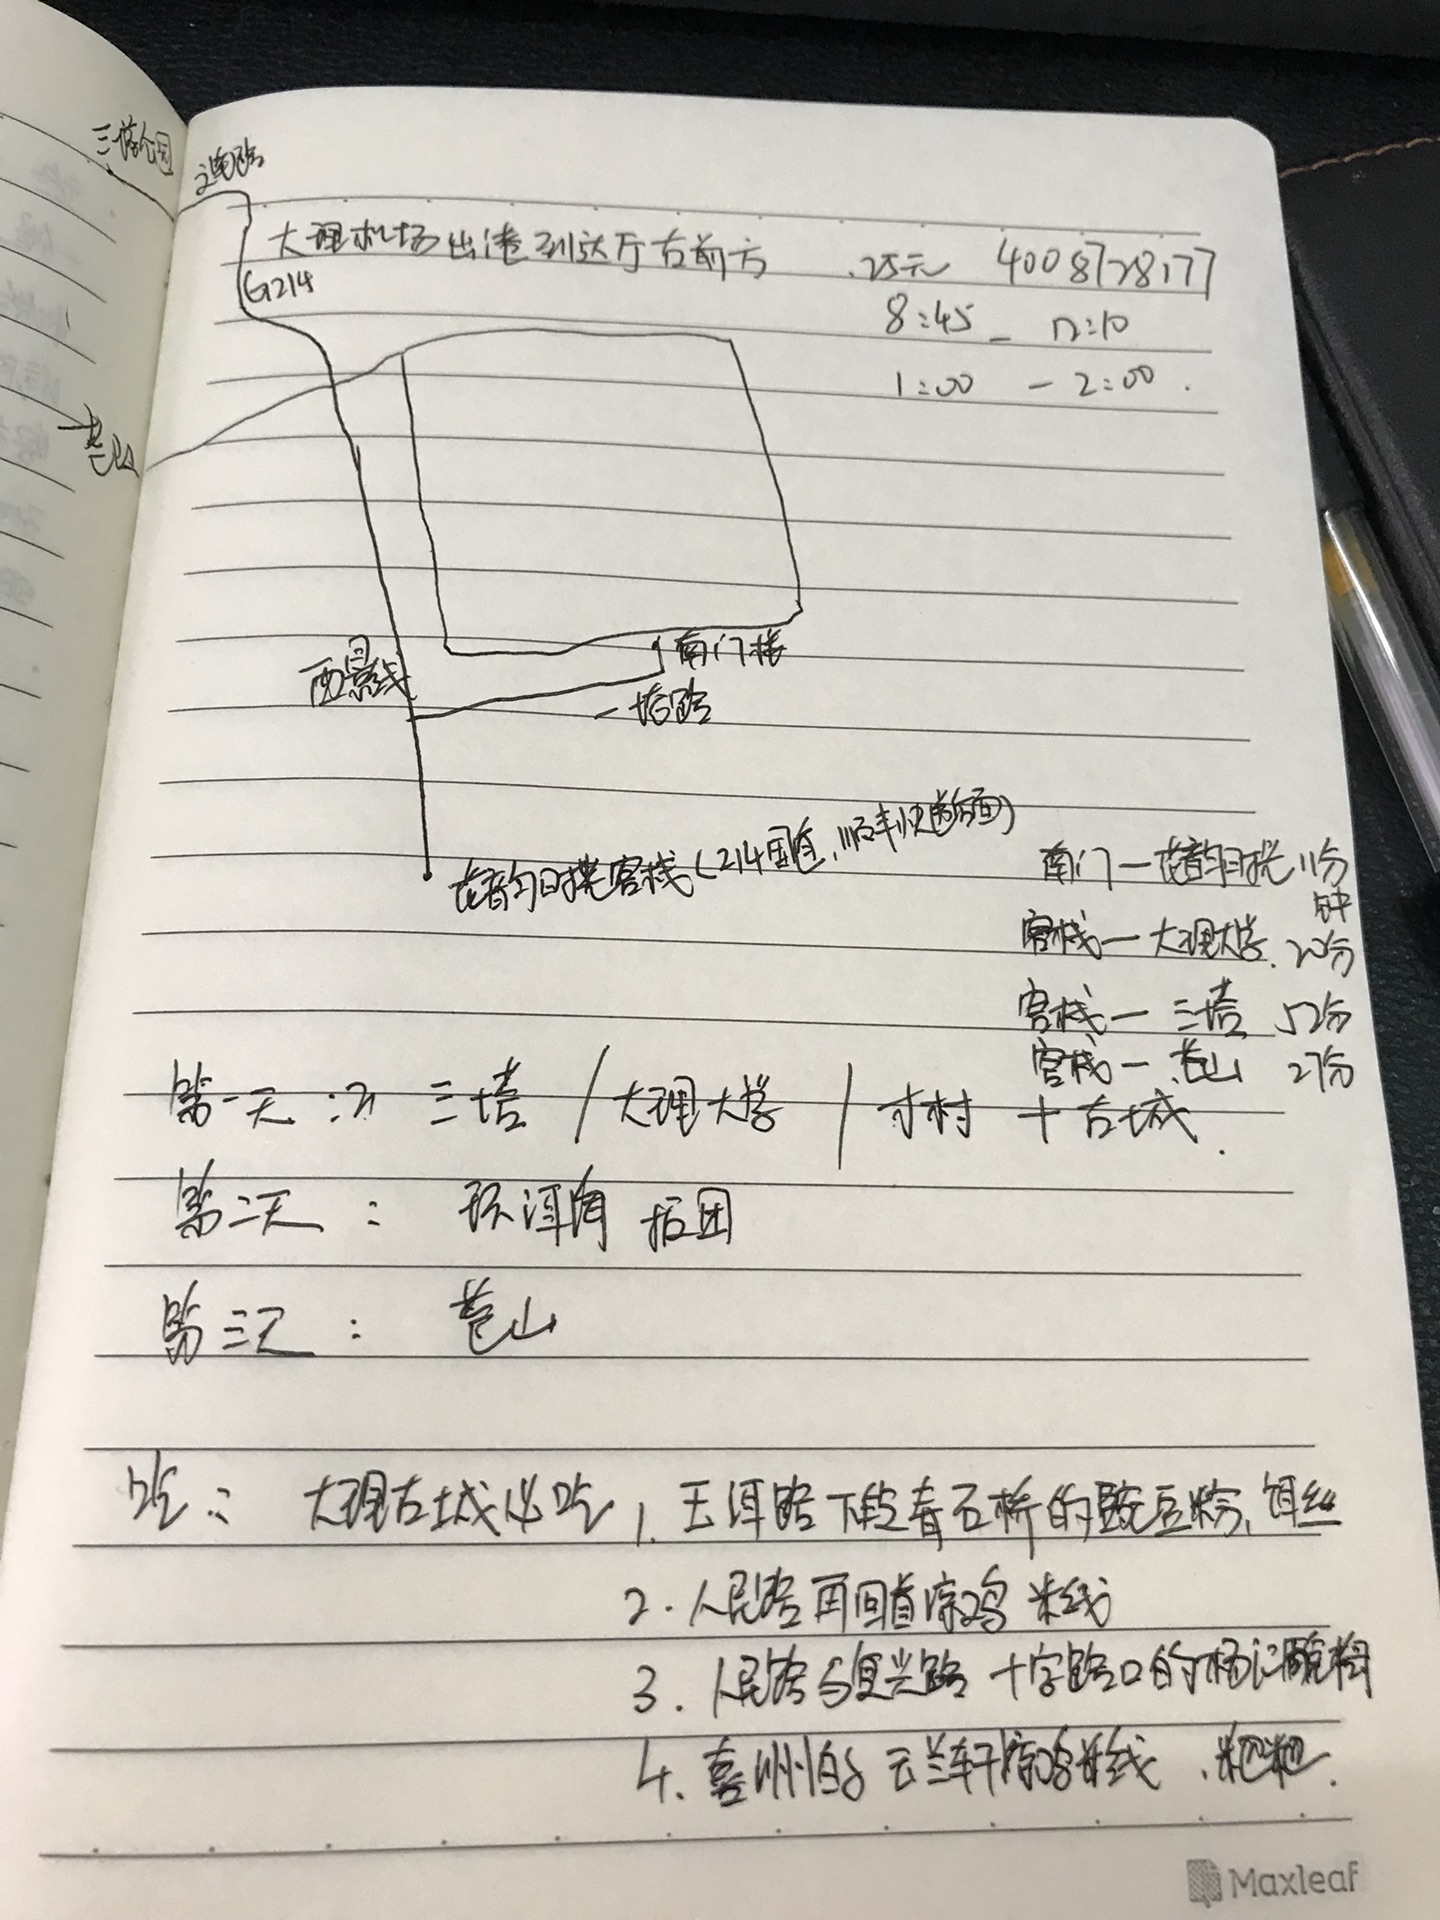 三塔公园
G214
大理机场出港到达厅右前方 .25元 4008728177
8:45 - 12:10
1:00 - 2:00.
苍山
南门楼
西景线
一塔路
花韵日撵客栈(214国道,顺丰快递后面)
南门—花韵日撵 11分钟
客栈—大理大学. 20分
客栈—三塔 52分
客栈—苍山 27分
第一天: 三塔 / 大理大学 / 才村 + 古城.
第二天: 环洱海 抱团
第三天: 苍山
吃: 大理古城必吃 1. 玉洱路下段青石桥的豌豆粉,饵丝
2. 人民路再回首凉鸡米线
3. 人民路与复兴路十字路口的杨记
4. 喜洲白 云兰轩凉鸡米线、粑粑.
Maxleaf